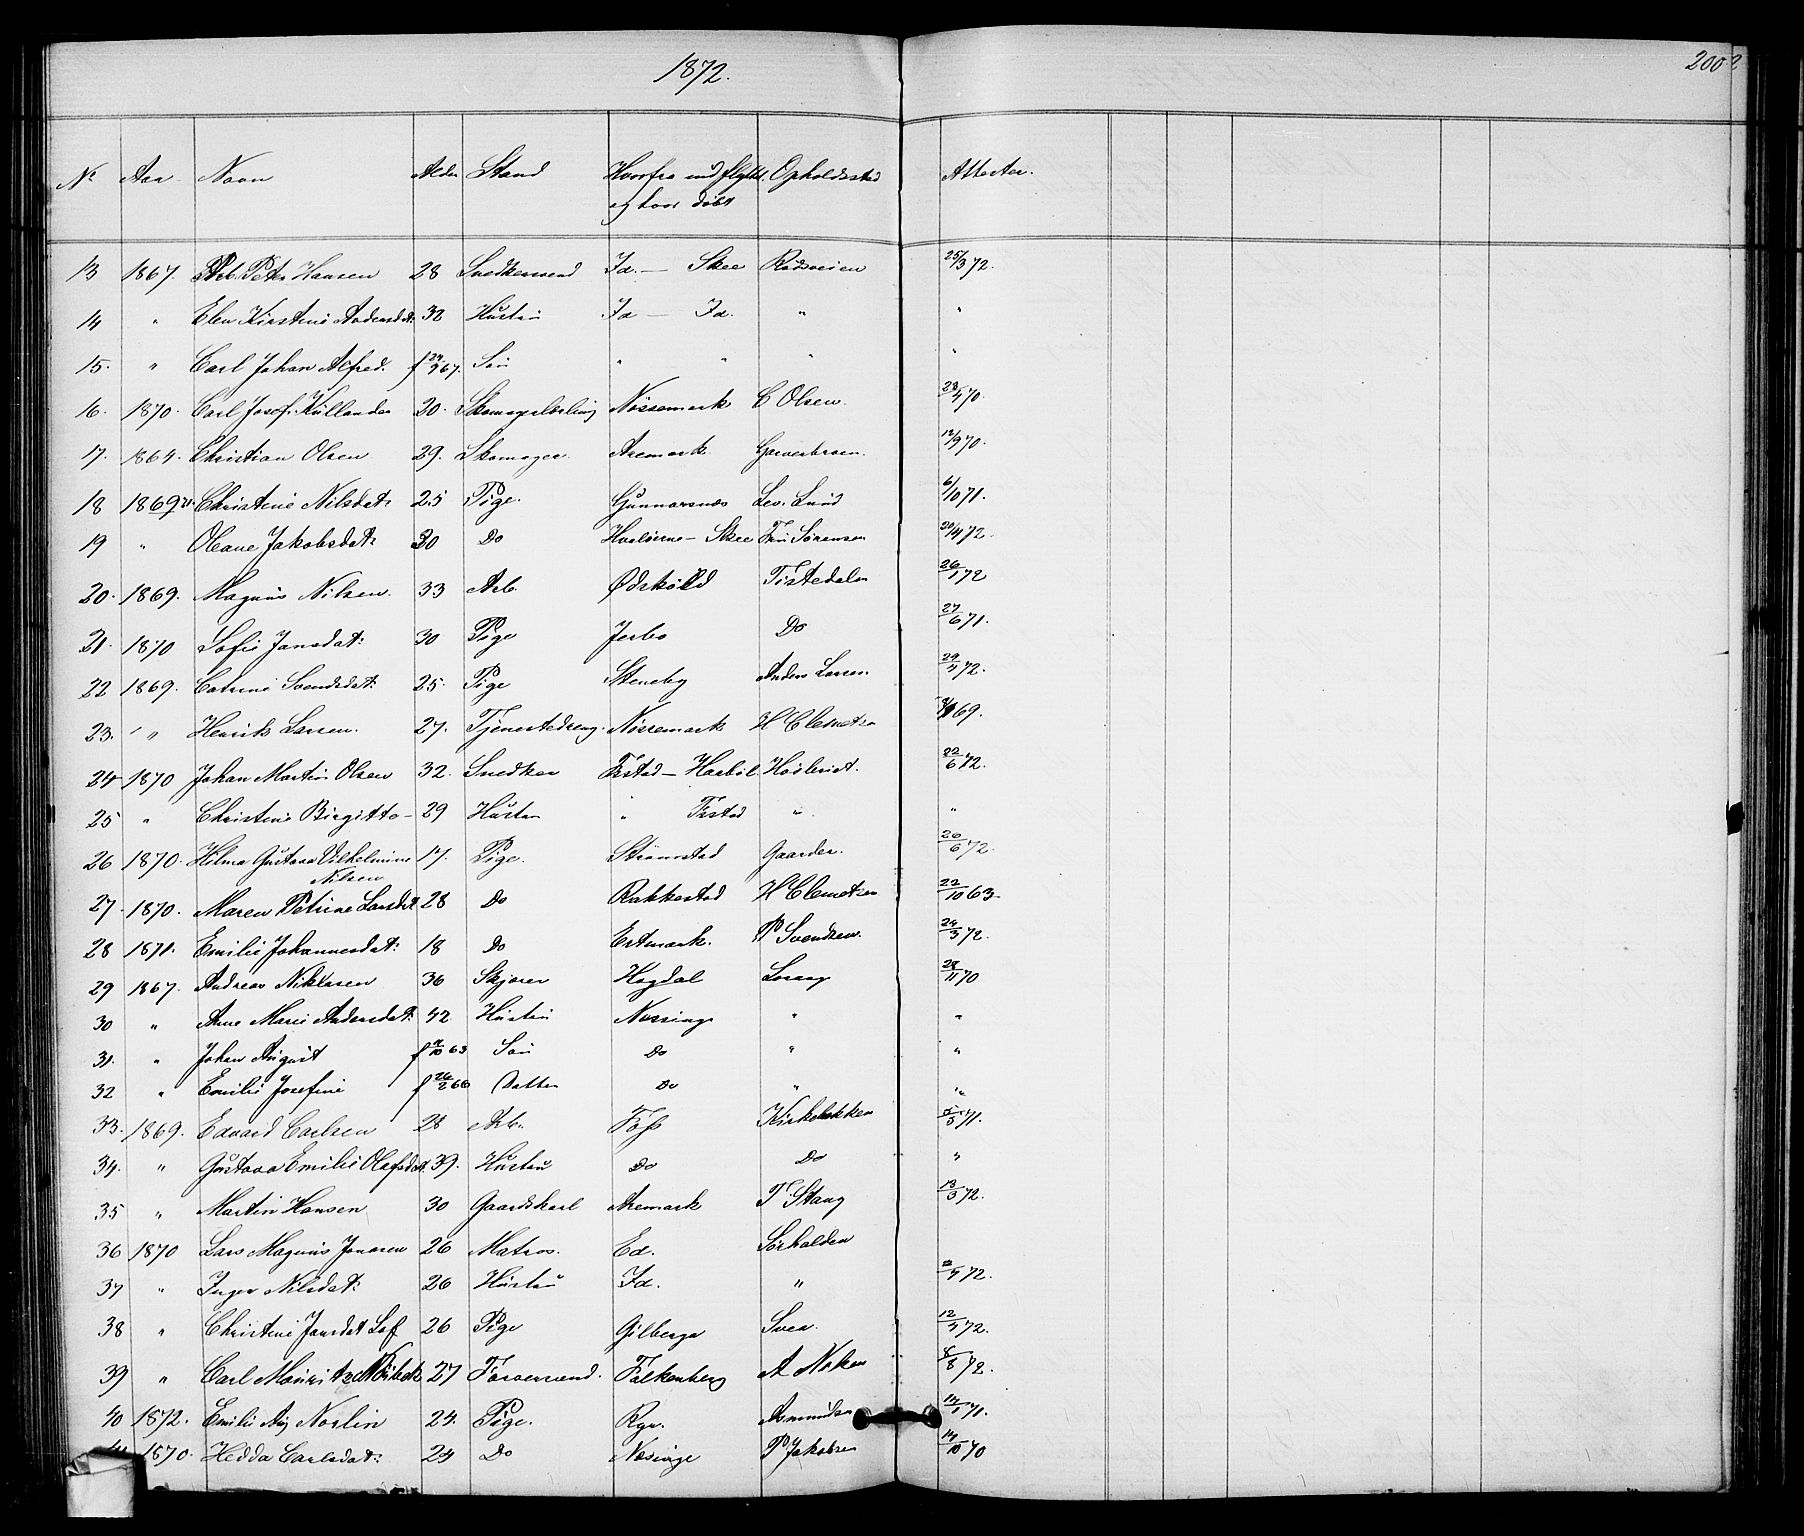 1872.
200
No Aar Navn Alder Stand Hvorfra indflyttet Opholdssted Attester.
og hvor døbt
13 1867. Arb. Peter Hansen 28 Snedkersvend Id. — Skee Rødsveien 25/3 72.
14 " Elen Kirstine Andersdat: 32 Hustru Id — Id. " "
15. " Carl Johan Alfred. f 24/9 67. Søn " " " "
16. 1870. Carl Josef Kullander 20. Skomagerlærling Nössemark C Olsen. 23/4 70.
17. 1864. Christian Olsen 29. Skomager. Aremark Garverbroen. 12/9 70.
18 1869 Christine Nilsdat: 25 Pige. Gunnarsnæs Lev. Lund 6/10 71.
19 " Oleane Jakobsdat: 30 Do Hvaløerne — Skee Fru Sørensen 20/4 72.
20. 1869. Magnus Nilsen. 33 Arb. Ødsköld Tistedalen 26/1 72
21. 1870 Sofie Jansdat: 30 Pige Jerbo Do 27/6 71.
22 1869. Catrine Svendsdat: 25. Pige Steneby Anders Larsen 29/4 72.
23. " Henrik Larsen. 27. Tjenestedreng. Nössemark H Clemetsen 69.
24 1870 Johan Martin Olsen 32. Snedker Frstad — Haabøl 22/6 72.
25 " Christine Birgitte — 29 Hustru " Frstad " "
26 1870. Hilma Gustava Vilhelmine 17. Pige. Strømstad Gaarder. 26/6 72.
Nilsen
27. 1870. Maren Petrine Larsdat 28 Do Rakkestad H Clemetsen 22/10 63.
28 1871. Emilie Johannesdat: 18 Do Ertemark. P Svendsen. 24/3 72.
29 1867. Andreas Niklasen 36 Skjører Hogdal Lorang 28/11 70
30 " Anne Marie Andersdat: 42 Hustru Næssinge " "
31. " Johan August f 10 63 Søn Do " "
32 " Emilie Josefine f 26/2 66 Datter Do " "
33. 1869. Edvard Carlsen 28 Arb. Fös Kirkebakken 5/5 71.
34. " Gustava Emilie Olafsdat. 39. Hustru Do Do "
35 " Martin Hansen 30 Gaardskarl Aremark T Stang 13/5 72.
36 1870 Lars Magnus Jonasen 26 Matros. Ed. Sørhalden
37 " Inger Nilsdat: 26 Hustru Id. " 2/4 72.
38 " Christine Jansdat Löf 26 Pige Gilberga Svea. 12/4 72.
39 " Carl Mauritz 27 Farversvend. Falkenberg A Nolsen 8 72.
40 1872. Emilie Aug Norlin 24. Pige. Ryr. Asmundsen 14/1 71.
1870. Hedda Carlsdat: 24 Do Næsinge P Jakobsen 14/10 70